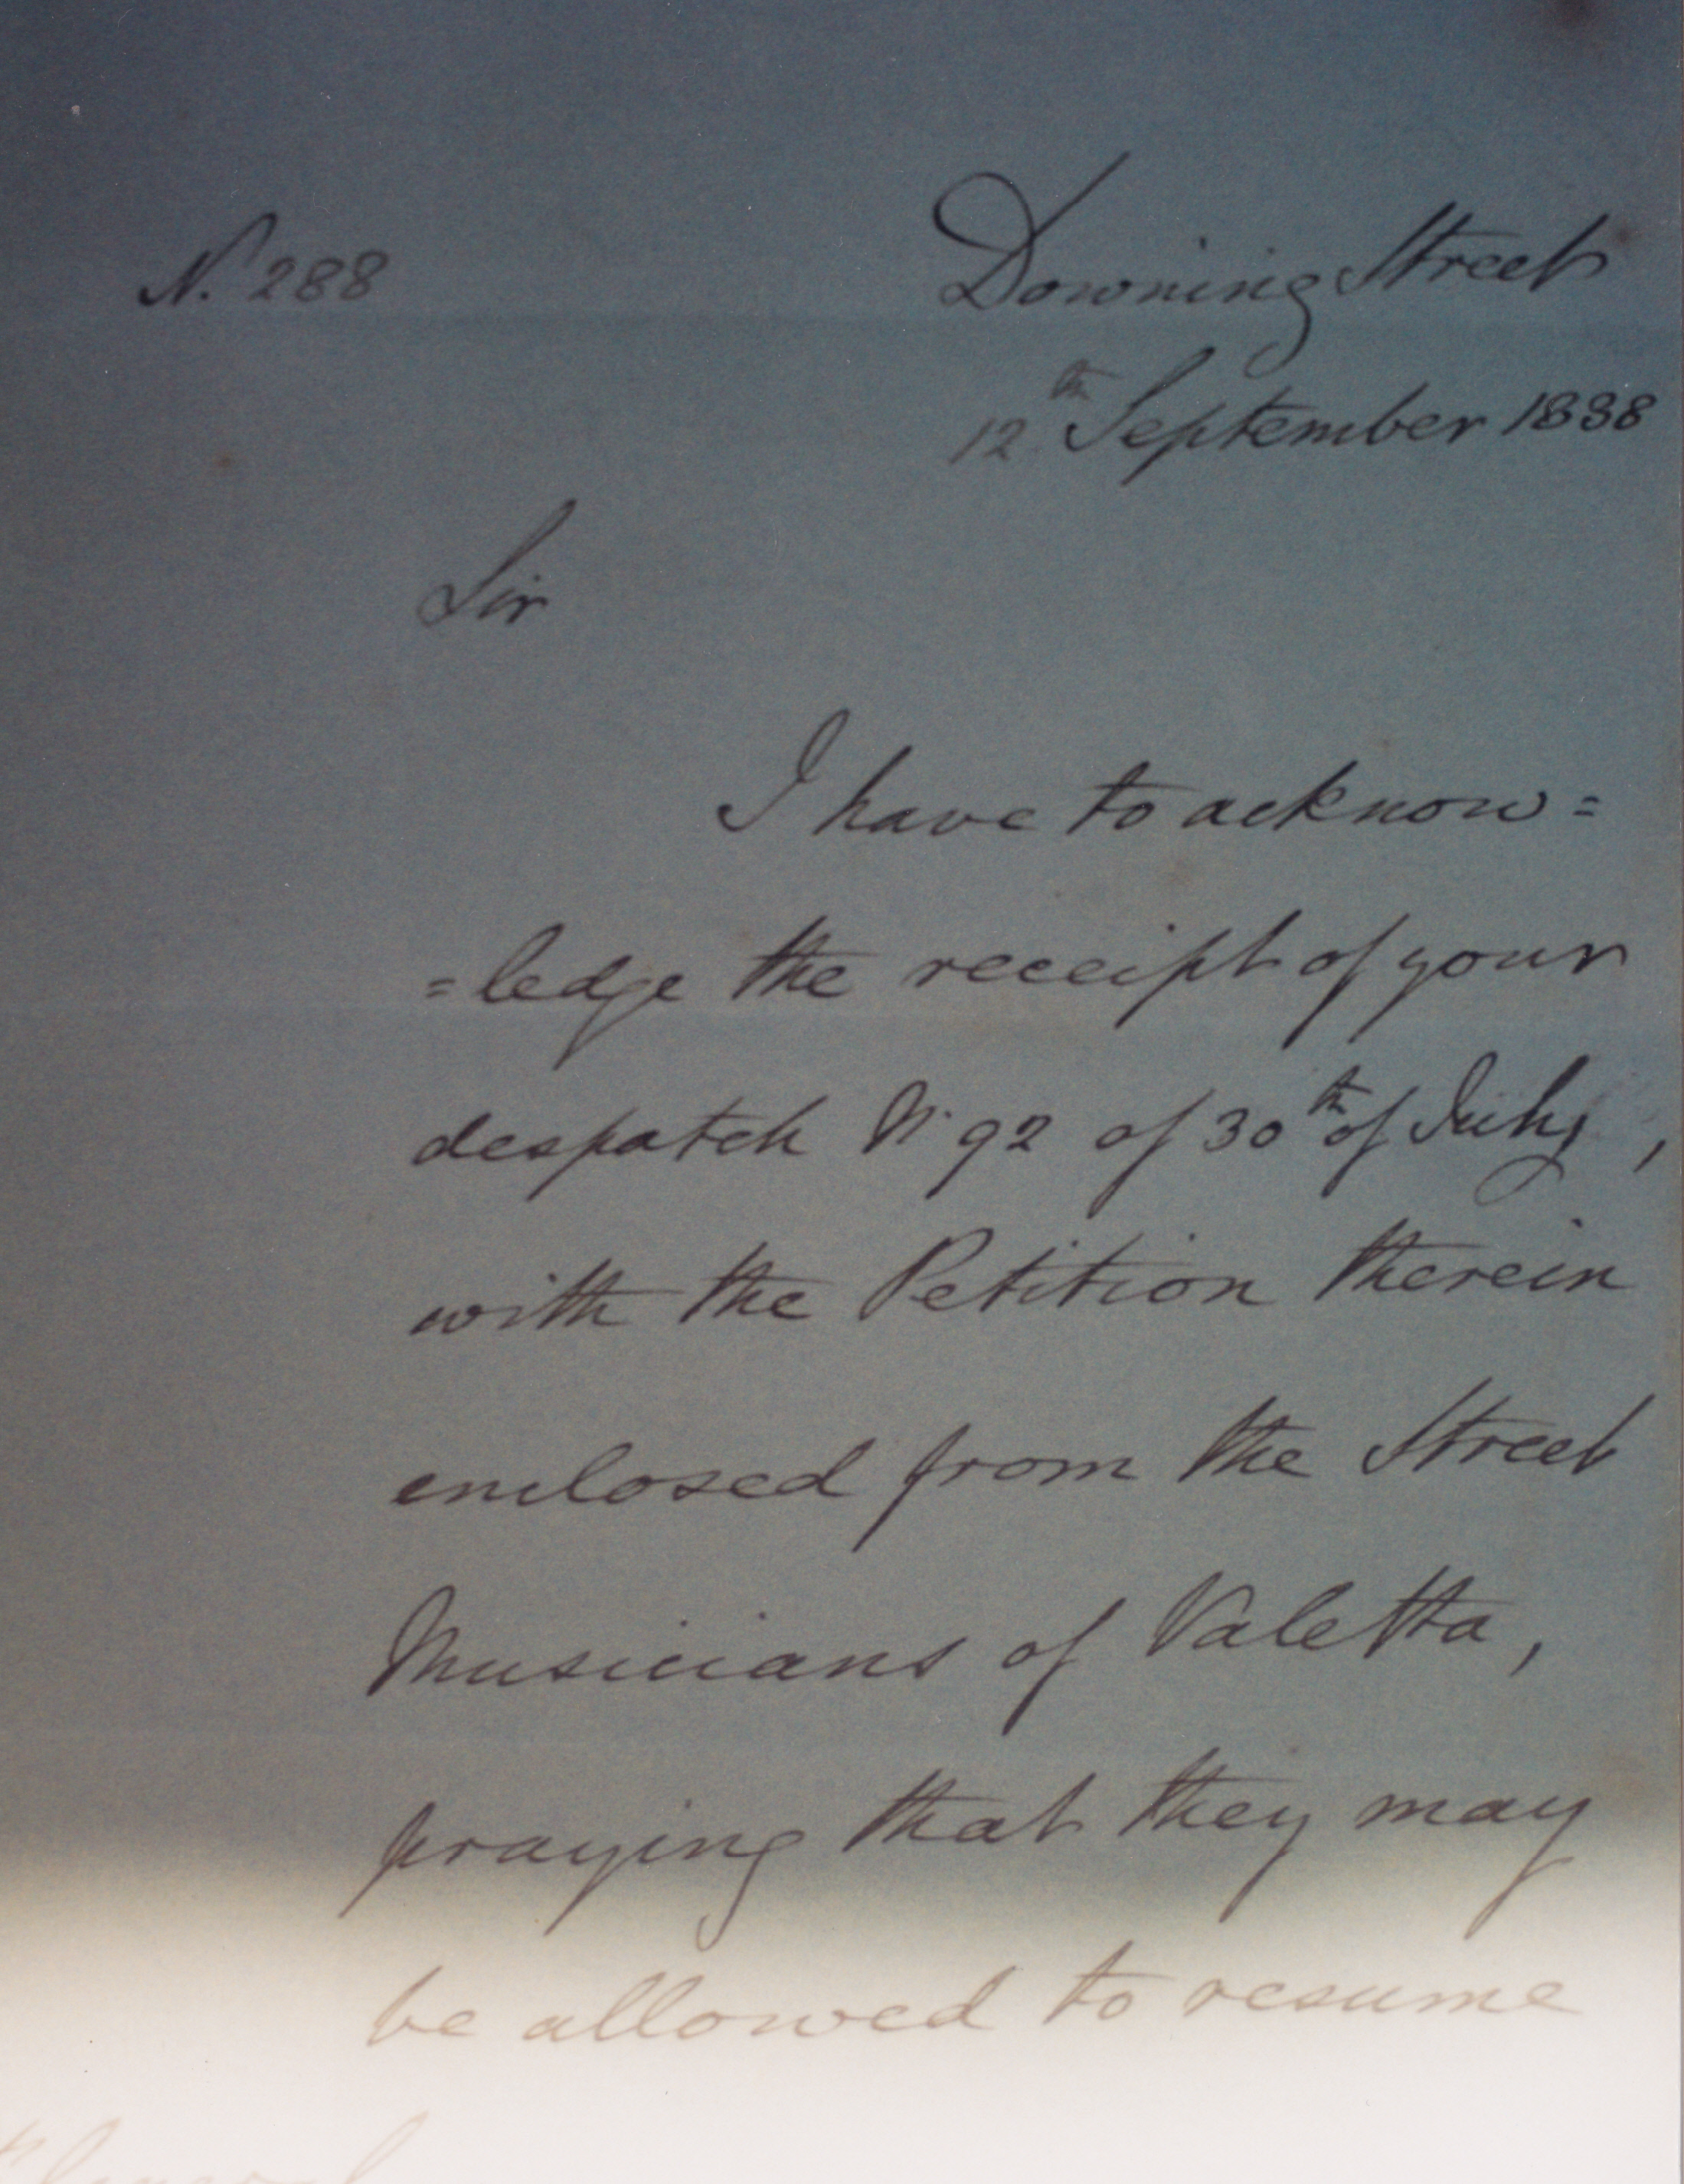 N. 288
Downing Street
12th September 1838
Sir
I have to acknow=
=ledge the receipt of your
despatch N. 92 of 30th of July,
with the Petition therein
enclosed from the Street
Musicians of Valetta,
praying that they may
be allowed to resume
General